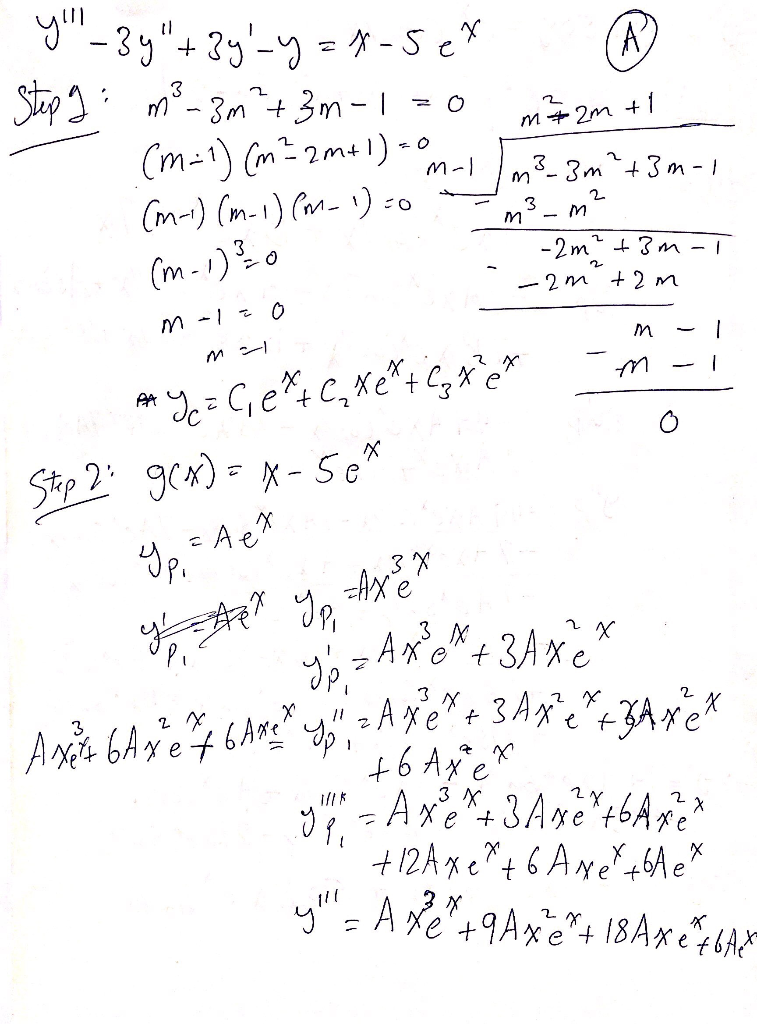 y''' - 3y'' + 3y' - y = x - 5e^x
(A)
Step 1: m³ - 3m² + 3m - 1 = 0
(m-1)(m² - 2m + 1) = 0
(m-1)(m-1)(m-1) = 0
(m-1)³ = 0
m - 1 = 0
m = 1
y_c = C₁e^x + C₂xe^x + C₃x²e^x
m² - 2m + 1
m-1 | m³ - 3m² + 3m - 1
- m³ - m²
-2m² + 3m - 1
- -2m² + 2m
m - 1
- m - 1
0
Step 2: g(x) = x - 5e^x
y_p₁ = Ae^x
y'_p₁ = Ae^x
y_p₁ = Ax³e^x
y'_p₁ = Ax³e^x + 3Ax²e^x
y''_p₁ = Ax³e^x + 3Ax²e^x + 3Ax²e^x
+ 6Axe^x
Ax³e^x + 6Ax²e^x + 6Axe^x =
y'''_p₁ = Ax³e^x + 3Ax²e^x + 6Ax²e^x
+ 12Axe^x + 6Axe^x + 6Ae^x
y''' = Ax³e^x + 9Ax²e^x + 18Axe^x + 6Ae^x